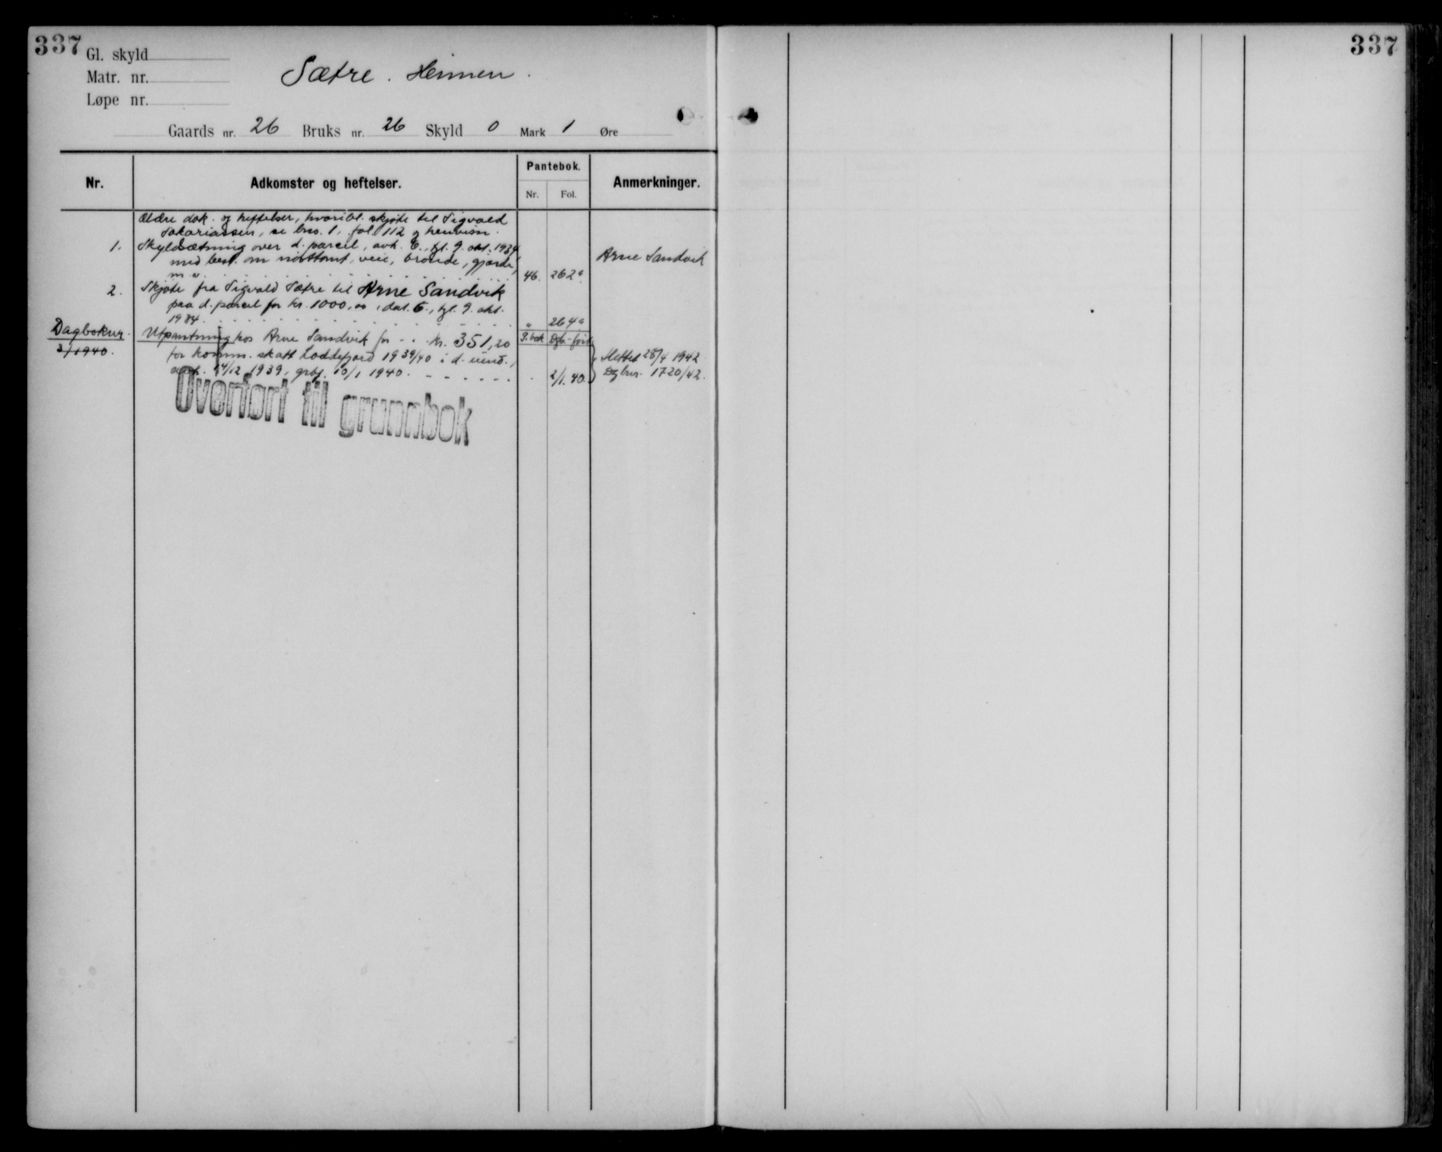 337
337
Gl. skyld
Matr. nr.
Løpe nr.
Sætre. Heimen.
Gaards nr. 26 Bruks nr. 26 Skyld 0 Mark 1 Øre
Nr. Adkomster og heftelser. Pantebok. Anmerkninger.
Nr. Fol.
Ældre dok. og heftelser, hvoribl. skjøte til Sigvald
Sakariassen, se bno. 1, fol 112 og henvisn.
1. Skyldsætning over d. parcel, avh. 6., tgl. 9. okt. 1934
med best. om nausttomt, veie, brønde, gjerde
m. v. 46. 262 Arne Sandvik
2. Skjøte fra Sigvald Sætre til Arne Sandvik
paa d. parcel for kr. 1000,00, dat. 6., tgl. 9. okt.
1934. " 264
Dagboknr. Utpantning hos Arne Sandvik for kr. 351,20 P.bok
2/1940. for komm. skatt Loddefjord 1939/40 i d. eiend., Slettet 28/4 1942
1939, 10/1 1940. 2/1.40. Dgbnr. 1720/42.
Overført til grunnbok